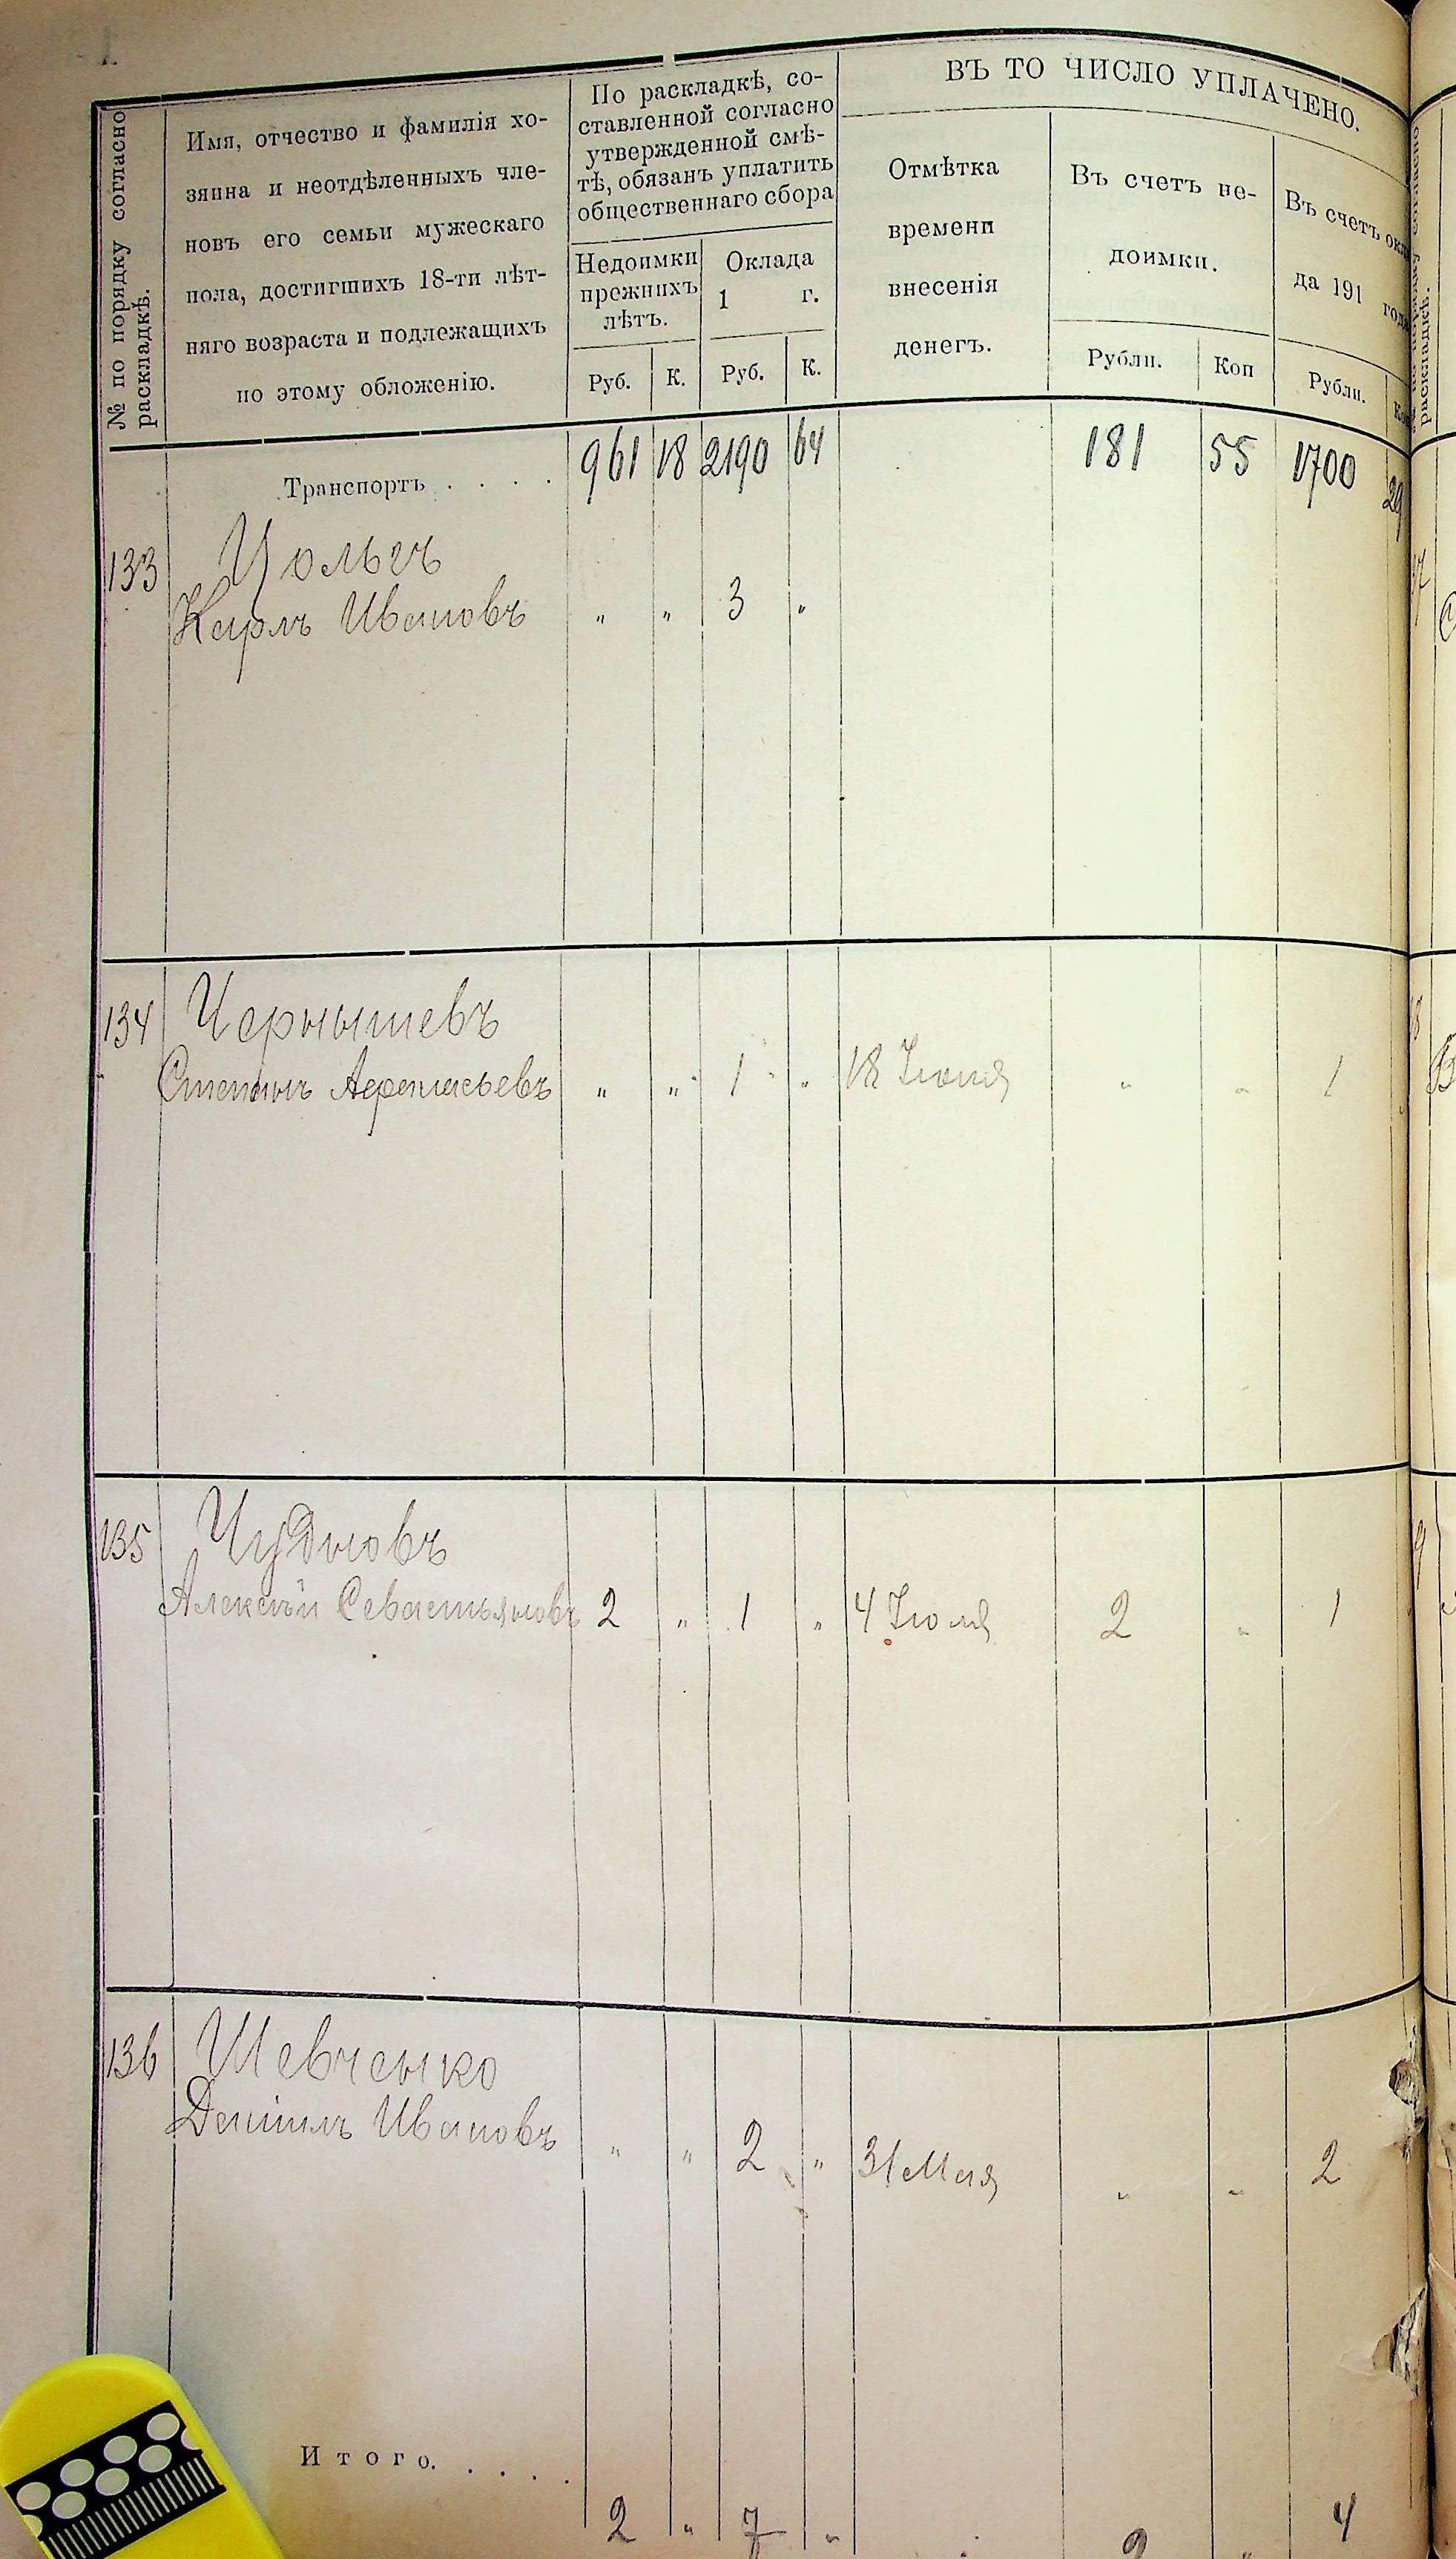 № по порядку согласно
раскладкѣ.
Имя, отчество и фамилія хо-
зяина и неотдѣленныхъ чле-
новъ его семьи мужескаго
пола, достигшихъ 18-ти лѣт-
няго возраста и подлежащихъ
по этому обложенію.
По раскладкѣ, со-
ставленной согласно
утвержденной смѣ-
тѣ, обязанъ уплатить
общественнаго сбора
Недоимки
прежнихъ
лѣтъ.
Оклада
1 г.
Руб. К. Руб. К.
ВЪ ТО ЧИСЛО УПЛАЧЕНО.
Отмѣтка
времени
внесенія
денегъ.
Въ счетъ не-
доимки.
Рубли. Коп
Въ счетъ окла
да 191 года
Рубли. Коп
Транспортъ . . . . 961 18 2190 64 181 55 1700 29
133 Цольгъ
Карлъ Ивановъ " " 3 "
134 Чернышевъ
Степанъ Афанасьевъ " " 1 " 18 Іюня " " 1 "
135 Чудновъ
Алексѣй Севастьяновъ 2 " 1 " 4 Іюля 2 " 1
136 Шевченко
Даніилъ Ивановъ " " 2 " 31 Мая " " 2
Итого. . . . . 2 " 7 " 2 " 4